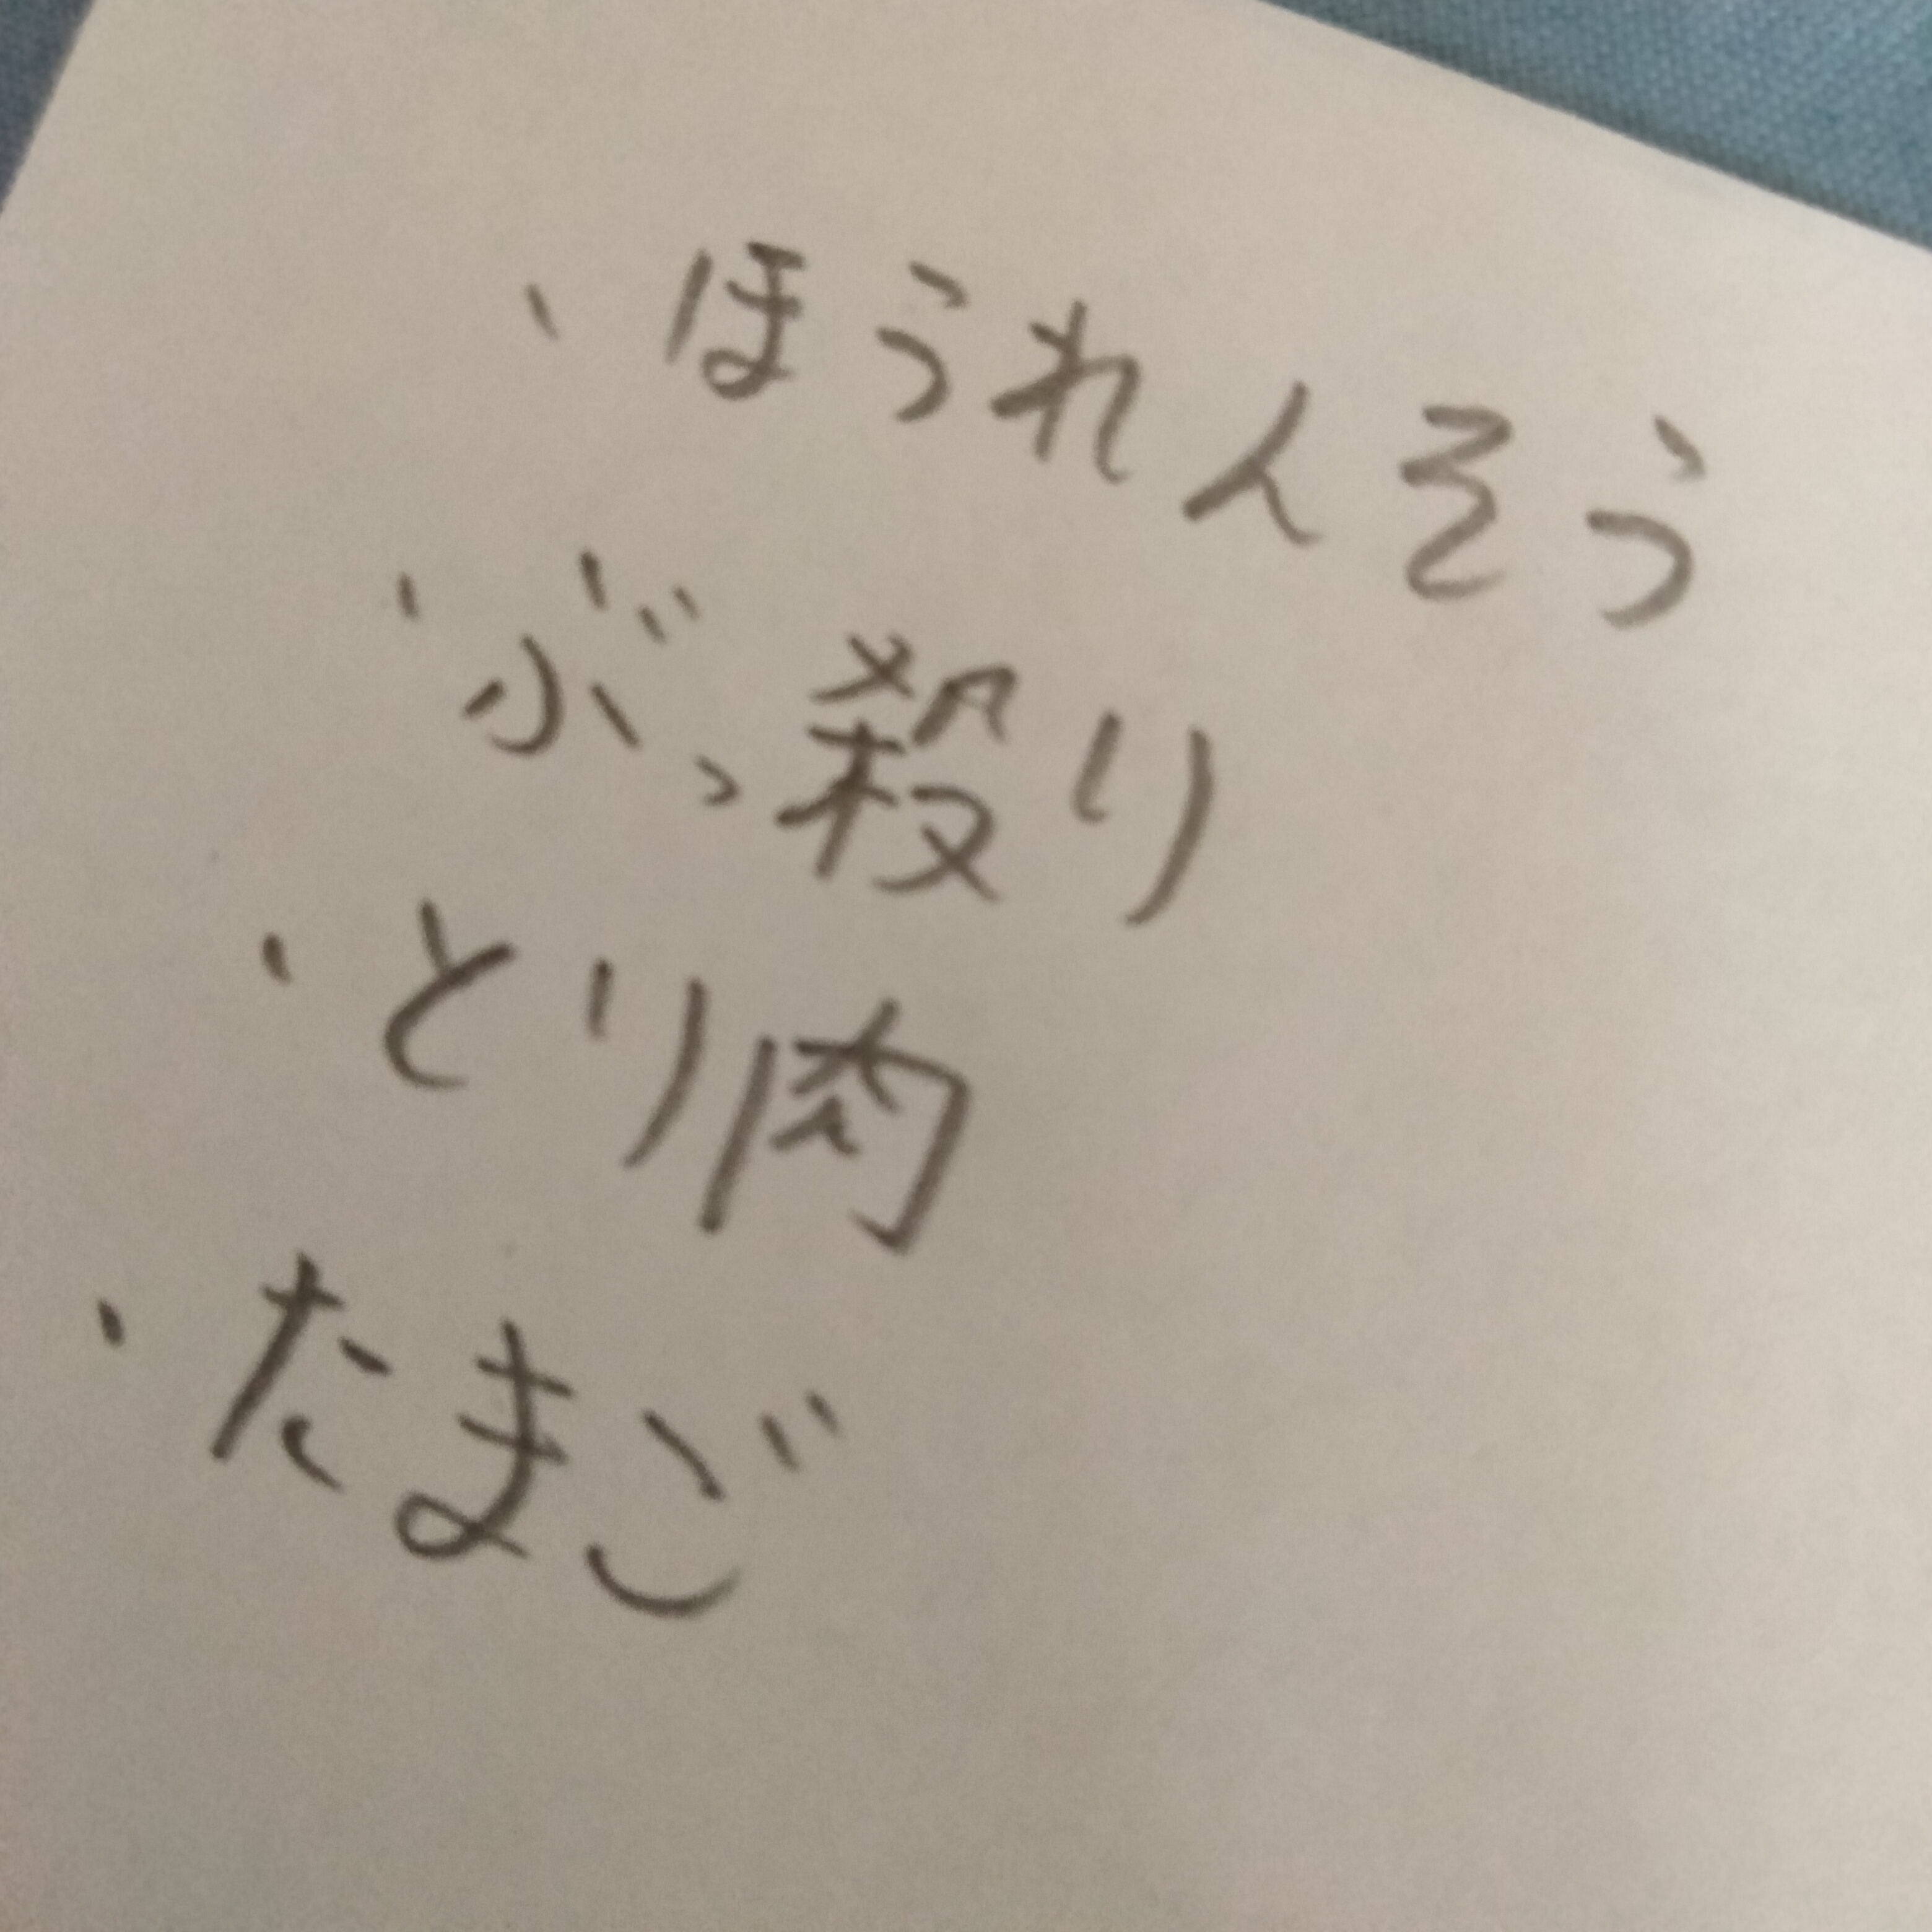 ・ほうれんそう
・ぶっ殺り
・とり肉
・たまご